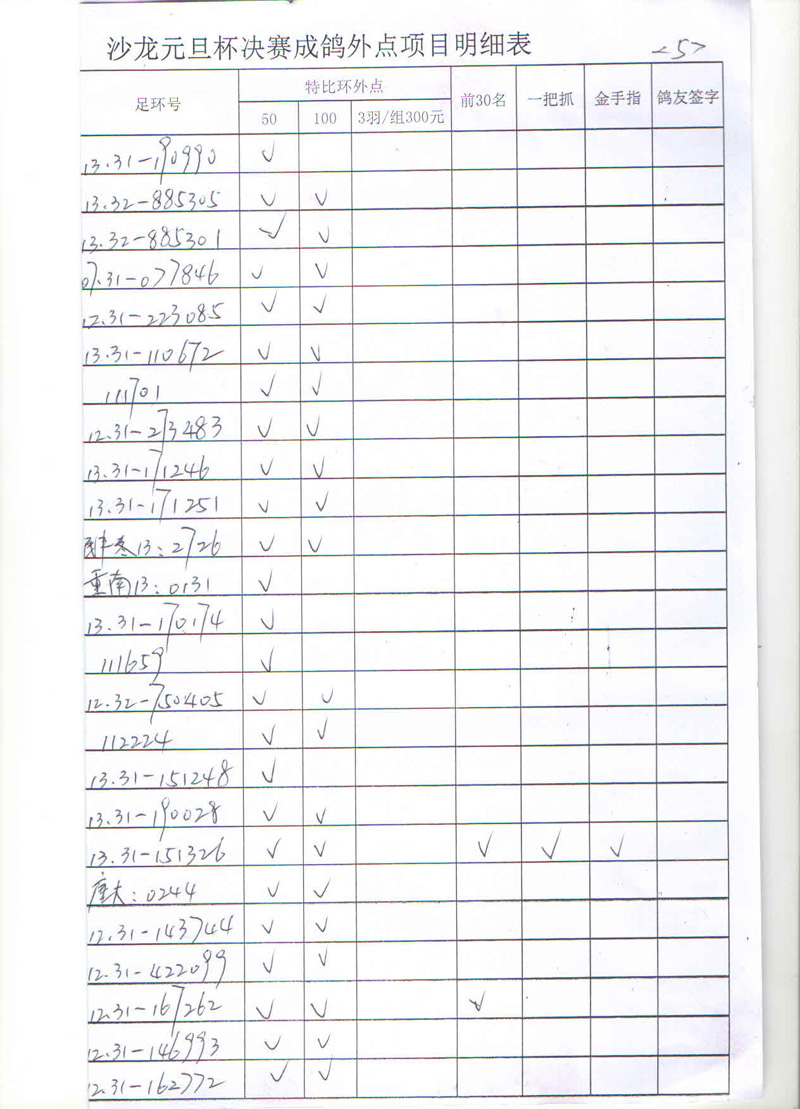 沙龙元旦杯决赛成鸽外点项目明细表 <5>
足环号 特比环外点 前30名 一把抓 金手指 鸽友签字
50 100 3羽/组300元
13.31-190990 ✓
13.32-885305 ✓ ✓
13.32-885301 ✓ ✓
07.31-077846 ✓ ✓
12.31-223085 ✓ ✓
13.31-110672 ✓ ✓
111701 ✓ ✓
12.31-273483 ✓ ✓
13.31-171246 ✓ ✓
13.31-171251 ✓ ✓
13:2726 ✓ ✓
重南13:0131 ✓
13.31-170174 ✓
111659 ✓
12.32-750405 ✓ ✓
112224 ✓ ✓
13.31-151248 ✓
13.31-190028 ✓ ✓
13.31-151326 ✓ ✓ ✓ ✓ ✓
:0244 ✓ ✓
12.31-143744 ✓ ✓
12.31-422099 ✓ ✓
12.31-167262 ✓ ✓ ✓
12.31-146993 ✓ ✓
12.31-162772 ✓ ✓